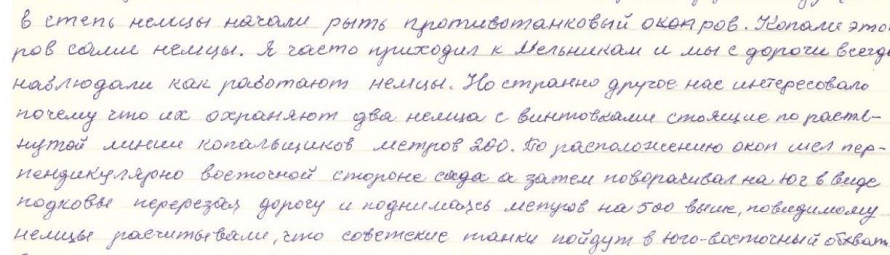 в степь немцы начали рыть противотанковый окоп ров. Копали этот
ров сами немцы. Я часто приходил к Мельникам и мы с дороги всегда
наблюдали как работают немцы. Но странно другое нас интересовало
почему что их охраняют два немца с винтовками стоящие по растя-
нутой линии копальщиков метров 200. По расположению окоп шел пер-
пендикулярно восточной стороне сада а затем поворачивал на юг в виде
подковы перерезая дорогу и поднимаясь метров на 500 выше, повидимому
немцы расчитывали, что советские танки пойдут в юго-восточный обхват